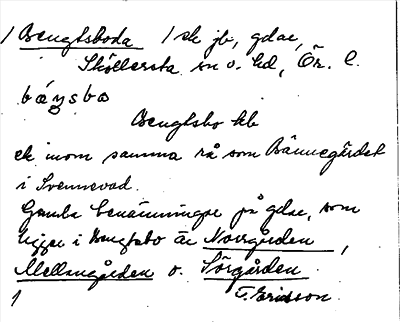 Bengtsboda 1 sk jb, gdae,
Sköllersta sn o. hd, Ör. l.
båŋsbo
Bengtsbo kb
ek inom samma rå som Bännegärdet
i Svennevad.
Gamla benämningar på gdae, som
ligger i Bengtsbo är Norrgården,
Mellangården o. Sörgården.
T. Ericsson.